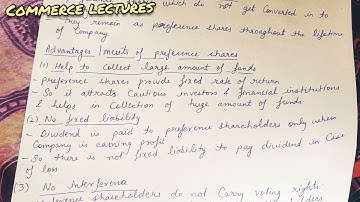 COMMERCE LECTURES
which do not get Converted in to
They remain as preference shares throughout the lifetime
of Company
Advantages / merits of preference shares
(1) Help to collect large amount of funds
- preference shares provide fixed rate of return
- So it attracts Cautious investors & financial institutions
& helps in Collection of huge amount of funds
(2) No fixed liability
- Dividend is paid to preference shareholders only when
Company is earning profit
- So there is not fixed liability to pay dividend in Case
of loss
(3) No interference
shareholders do not Carry voting rights